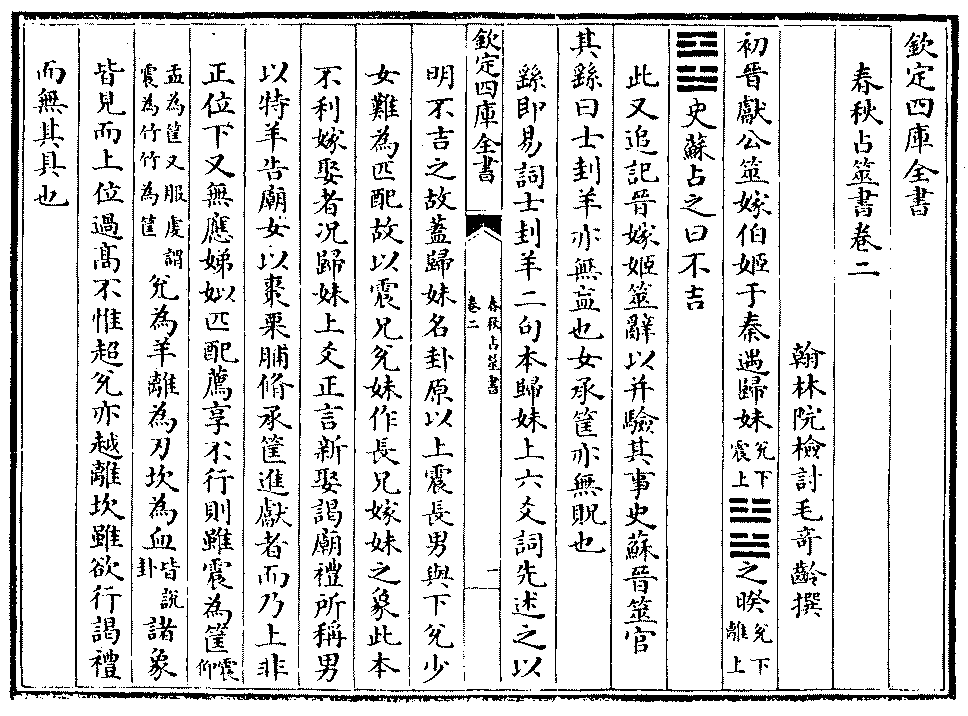 欽定四庫全書
春秋占筮書卷二
翰林院檢討毛奇齡撰
初晉獻公筮嫁伯姬于秦遇歸妹兌下震上䷵之睽兌下離上
䷥史蘇占之曰不吉
此又追記晉嫁姬筮辭以并驗其事史蘇晉筮官
其繇曰士刲羊亦無衁也女承筐亦無貺也
繇即易詞士刲羊二句本歸妹上六爻詞先述之以
欽定四庫全書
春秋占筮書
卷二
一
明不吉之故蓋歸妹名卦原以上震長男與下兌少
女難為匹配故以震兄兌妹作長兄嫁妹之象此本
不利嫁娶者况歸妹上爻正言新娶謁廟禮所稱男
以特羊告廟女以棗栗腶脩承筐進獻者而乃上非
正位下又無應娣姒匹配薦享不行則雖震為筐震仰
盂為筐又服虔謂震為竹竹為筐兌為羊離為刃坎為血皆說卦諸象
皆見而上位過高不惟超兌亦越離坎雖欲行謁禮
而無其具也